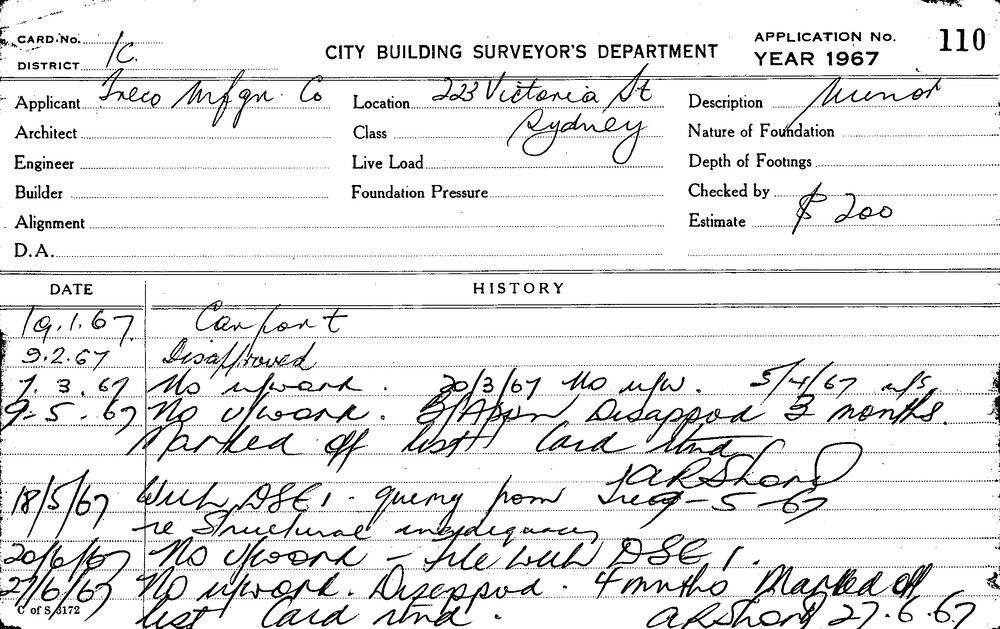 CARD No. 1C.
DISTRICT
CITY BUILDING SURVEYOR'S DEPARTMENT
APPLICATION No. 110
YEAR 1967
Applicant Treco Mfgn. Co Location 223 Victoria St Description Minor
Architect Class Sydney Nature of Foundation
Engineer Live Load Depth of Footings
Builder Foundation Pressure Checked by
Alignment Estimate $ 200
D.A.
DATE HISTORY
19.1.67 Carport
9.2.67 Disapproved
7.3.67 No u/work. 20/3/67 No u/w. 5/4/67
9-5-67 No u/work. B/Appn Disappod 3 months.
Marked off list Card rtnd
ARShord
18/5/67 With DSE1. query from Treco 9-5-67
re Structural inadequacy
20/6/67 No u/work - File with DSE1.
27/6/67 No u/work. Disappod. 4 mnths Marked off
list Card rtnd. ARShord 27.6.67
C of S 3172